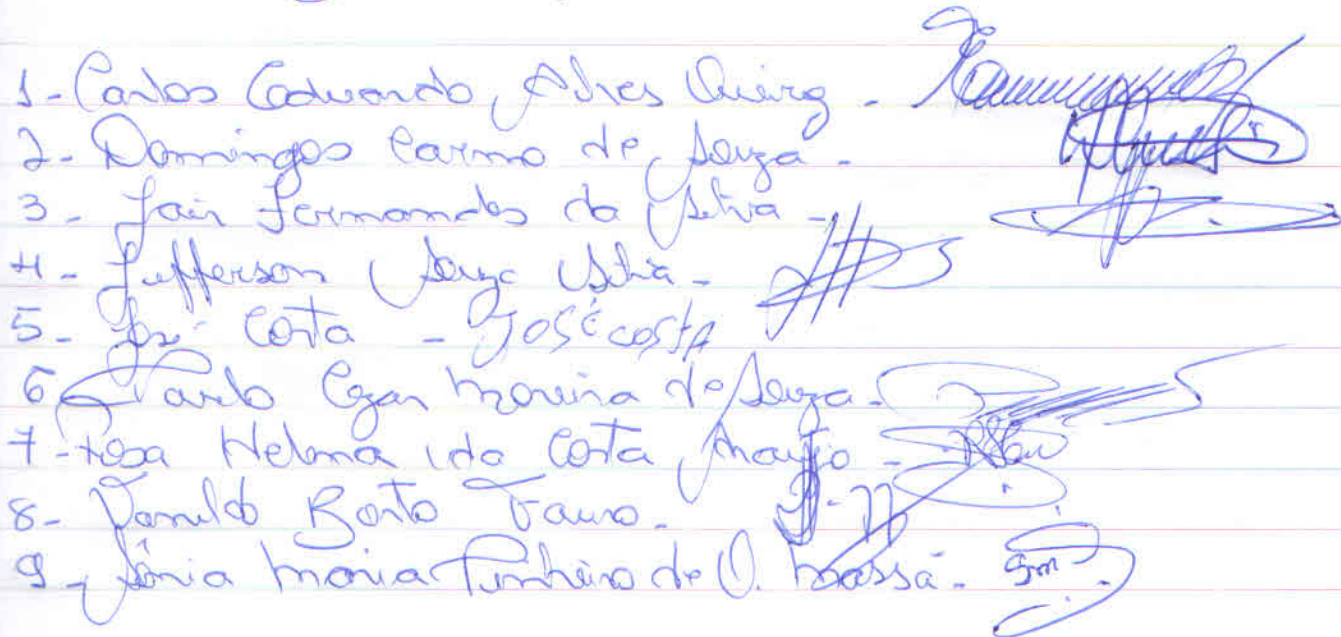 1- Carlos Eduardo Alves Queiroz -
2- Domingos Carmo de Souza -
3- Jair Fernandes da Silva -
4- Jefferson Souza Silva -
5- José Costa - José costA
6 Paulo Cezar Moreira de Souza -
7- Rosa Helena da Costa Araujo -
8- Vanildo Bonto -
9- Sônia Maria Pinheiro de O. Massa -